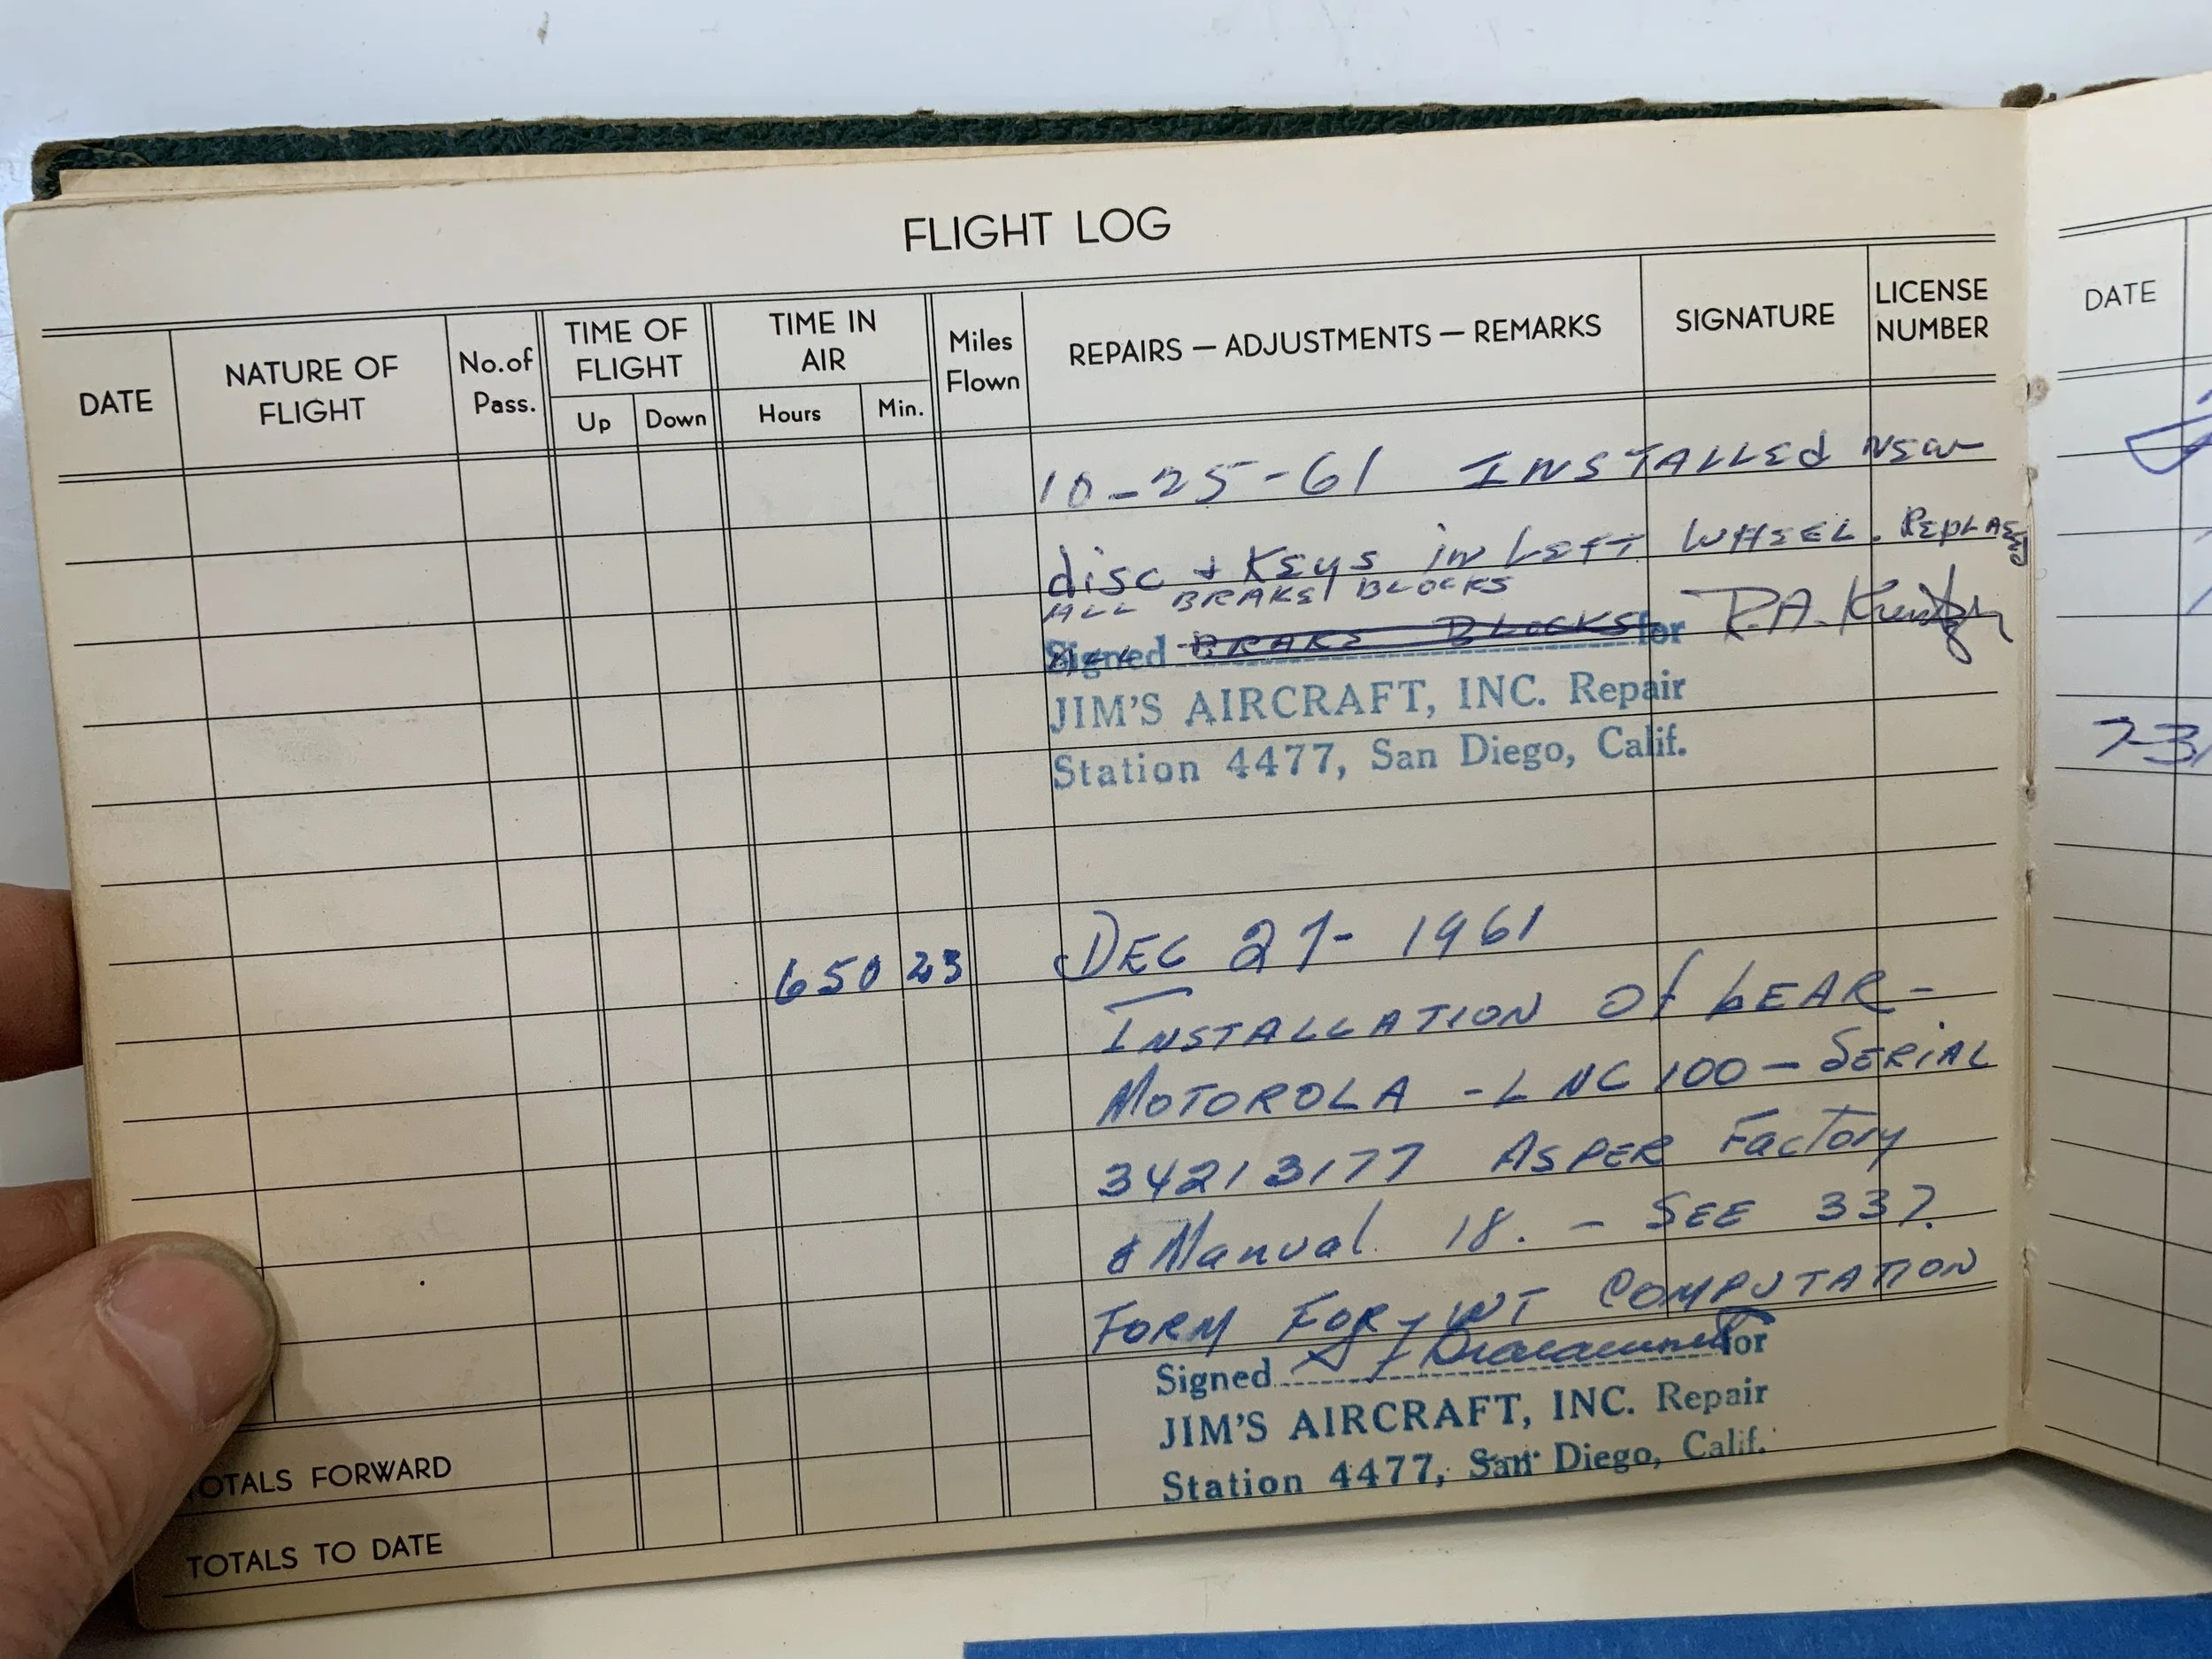 FLIGHT LOG
DATE
NATURE OF FLIGHT
No. of Pass.
TIME OF FLIGHT
Up
Down
TIME IN AIR
Hours
Min.
Miles Flown
REPAIRS — ADJUSTMENTS — REMARKS
SIGNATURE
LICENSE NUMBER
10-25-61 INSTALLED NEW
disc + KEYS in LEFT WHEEL. REPLACED
ALL BRAKE BLOCKS
ALL BRAKE BLOCKS
Signed for R.A.
JIM'S AIRCRAFT, INC. Repair
Station 4477, San Diego, Calif.
650 23 DEC 27- 1961
INSTALLATION Of LEAR -
MOTOROLA - LNC 100 - SERIAL
34213177 AS PER Factory
& Manual 18. - SEE 337.
FORM FOR WT COMPUTATION
Signed for
JIM'S AIRCRAFT, INC. Repair
Station 4477, San Diego, Calif.
OTALS FORWARD
TOTALS TO DATE
DATE